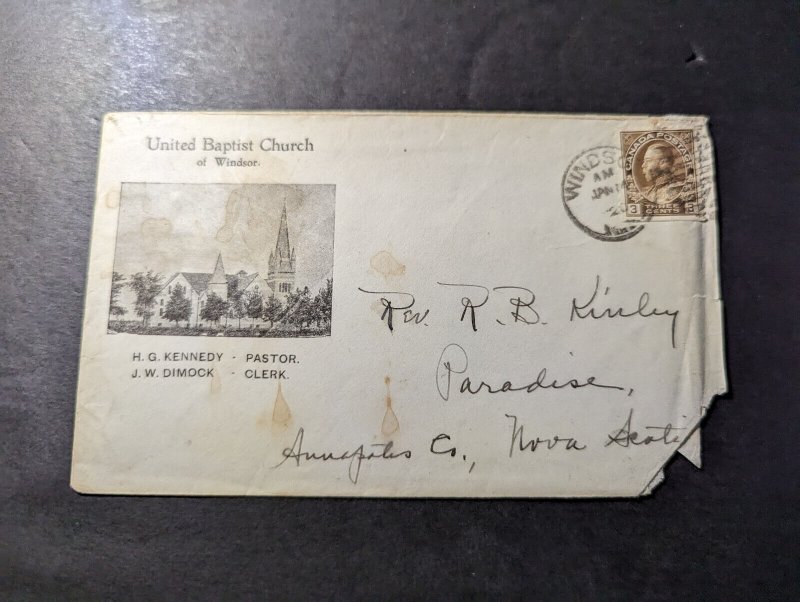 United Baptist Church
of Windsor.
H. G. KENNEDY - PASTOR.
J. W. DIMOCK - CLERK.
WINDSO
AM
JAN 14
20
CANADA POSTAGE
3 THREE CENTS 3
Rev. R. B. Kinley
Paradise,
Annapolis Co., Nova Scoti